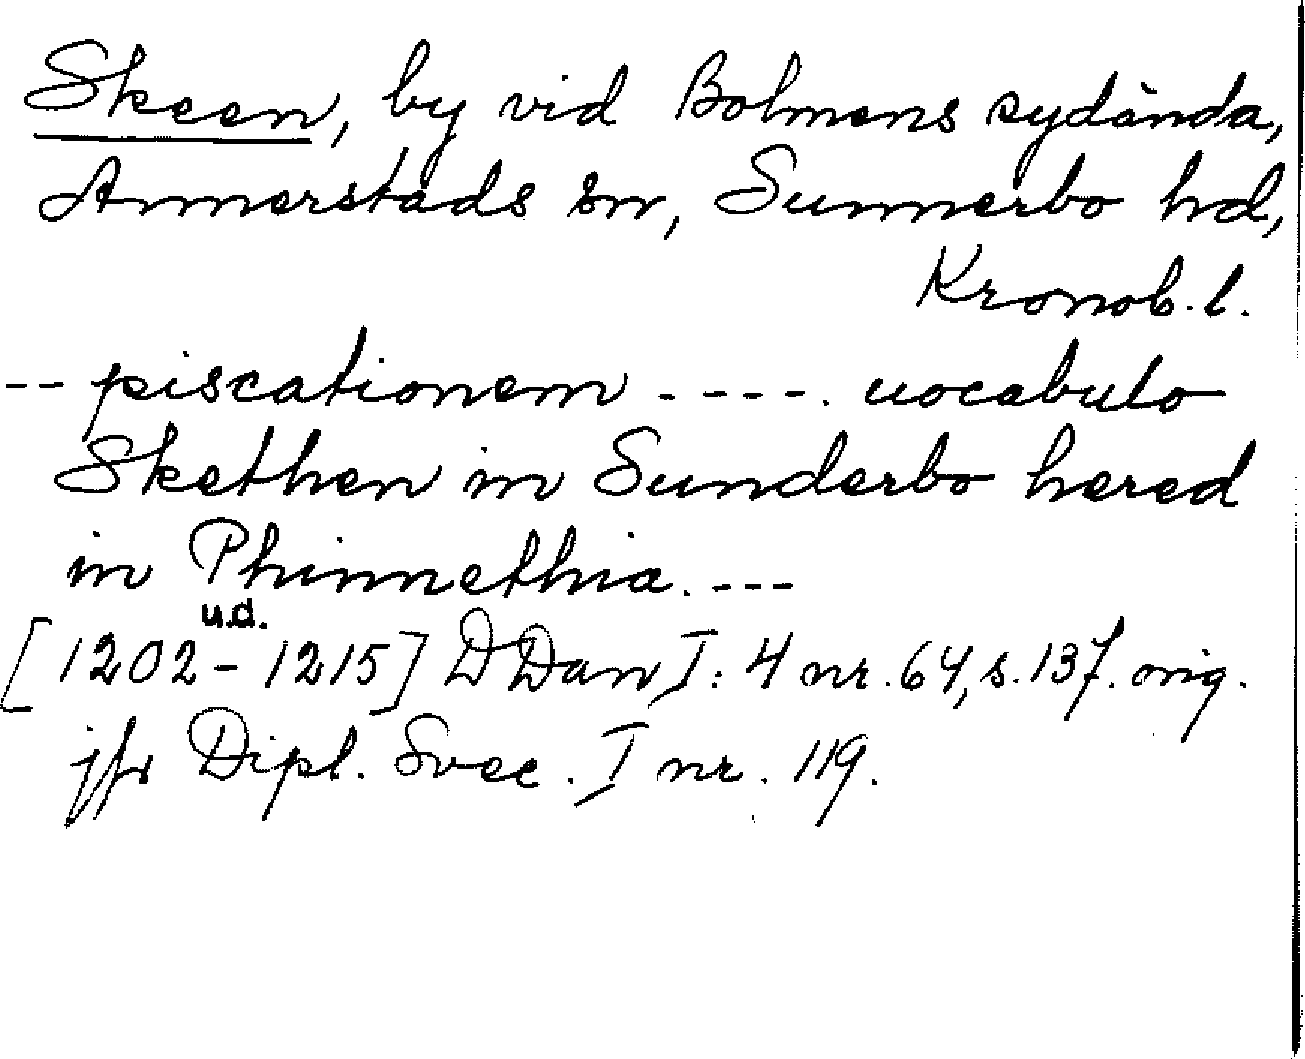 Skeen, by vid Bolmens sydända,
Annerstads sn, Sunnerbo hd,
Kronob. l.
-- piscationem ----. uocabulo
Skethen in Sunderbo hered
in Phinnethia. ---
u.d.
[1202-1215] DDan I: 4 nr. 64, s. 137. orig.
jfr Dipl. Svec. I nr. 119.